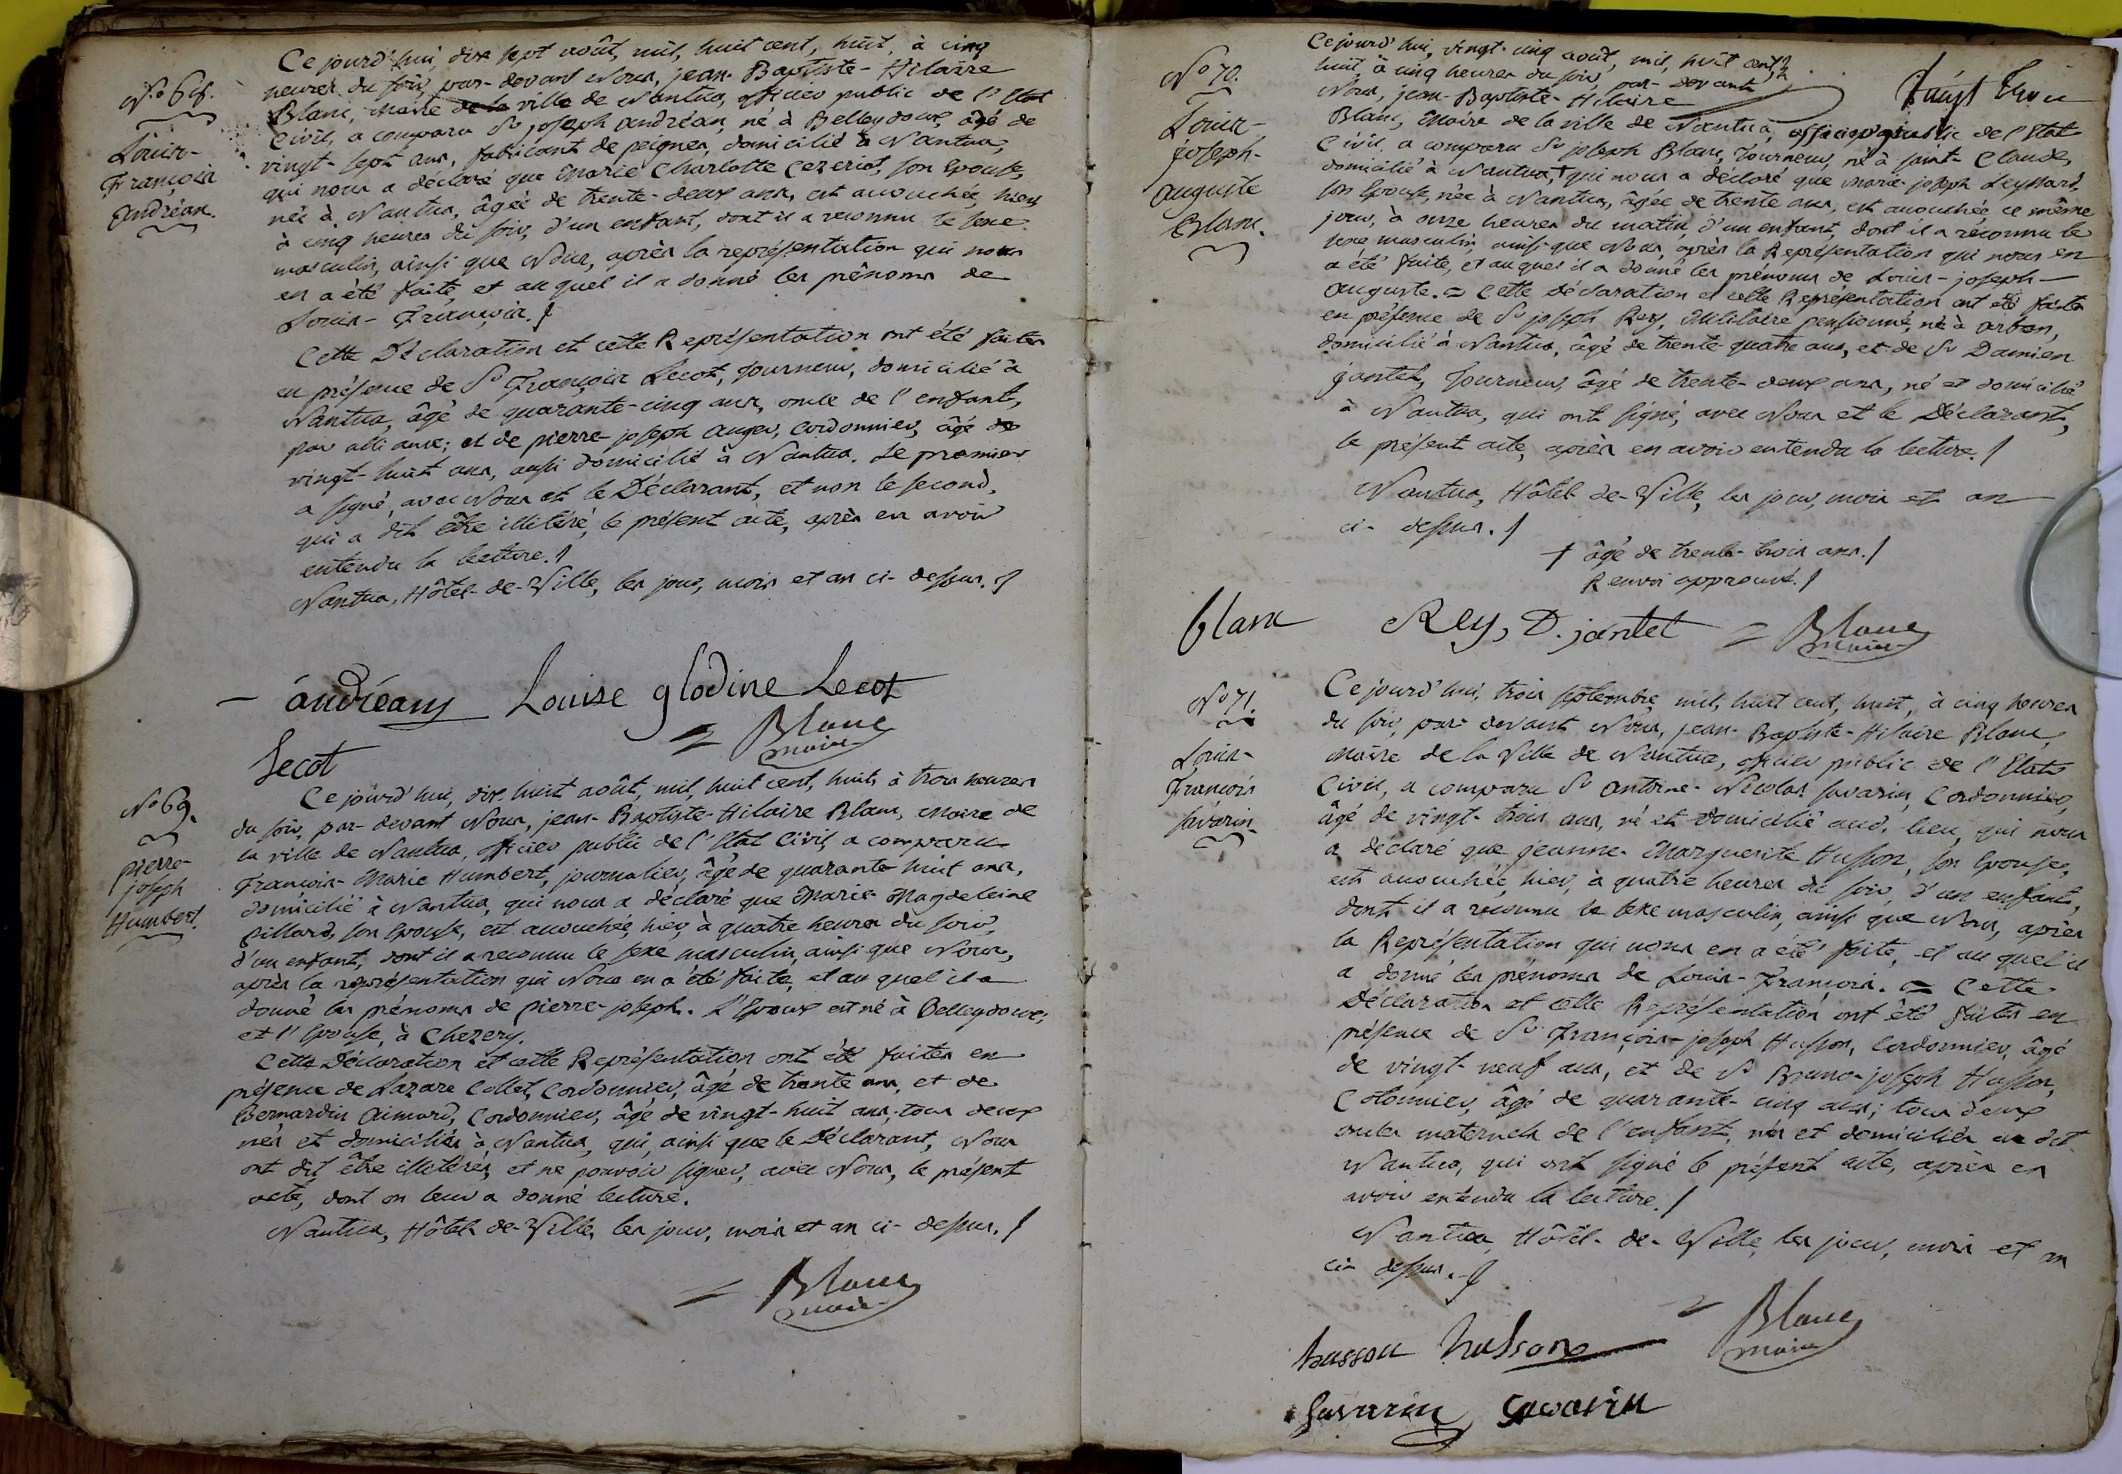 N.º 68.
Louis-
François
andréan.
Ce jourd'hui, dix sept août, mil, huit cent, huit, à cinq
heures du soir, par-devant Nous, jean-Baptiste-Hilaire
Blanc, Maire de la ville de Nantua, officier public de l'Etat
Civil, a comparu Sr joseph andréan, né à Belleydoux, âgé de
vingt-sept ans, fabricant de peignes, domicilié à Nantua,
qui nous a déclaré que Marie Charlotte Cezeriat, son Epouse,
née à Nantua, âgée de trente-deux ans, est accouchée, hier
à cinq heures du soir, d'un enfant, dont il a reconnu le sexe
masculin, ainsi que Nous, après la représentation qui nous
en a été faite, et auquel il a donné les prénoms de
Louis-François./
Cette Déclaration et cette Représentation ont été faites
en présence de Sr François Lecot, Tourneur, domicilié à
Nantua, âgé de quarante-cinq ans, oncle de l'enfant,
par alliance; et de pierre-joseph auger, Cordonnier, âgé de
vingt-huit ans, aussi domicilié à Nantua. Le premier
a signé, avec Nous et le Déclarant, et non le second,
qui a dit être illitéré, le présent acte, après en avoir
entendu la lecture./
Nantua, Hôtel-de-Ville, les jour, mois et an ci-dessus./
andréans Louise glodine Lecot
= Blanc
maire
Lecot
N.º 69.
pierre-
joseph
Humbert.
Ce jourd'hui, dix-huit août, mil, huit cent, huit, à trois heures
du soir, par-devant Nous, jean-Baptiste-Hilaire Blanc, Maire de
la ville de Nantua, officier public de l'Etat Civil, a comparu
François-Marie Humbert, journalier, âgé de quarante huit ans,
domicilié à Nantua, qui nous a déclaré que Marie-Magdeleine
Pillard, son Epouse, est accouchée, hier, à quatre heures du soir,
d'un enfant, dont il a reconnu le sexe masculin, ainsi que Nous,
après la représentation qui Nous en a été faite, et au quel il a
donné les prénoms de pierre-joseph. L'Epoux est né à Belleydoux,
et l'Epouse, à Chezery.
Cette Déclaration et cette Représentation ont été faites en
présence de Lazare Collet, Cordonnier, âgé de trente ans, et de
Bernardin Aimard, Cordonnier, âgé de vingt-huit ans, tous deux
nés et domiciliés à Nantua, qui, ainsi que le Déclarant, Nous
ont dit être illitérés, et ne pouvoir signer, avec Nous, le présent
acte, dont on leur a donné lecture.
Nantua, Hôtel-de-Ville, les jour, mois et an ci-dessus./
= Blanc
maire
N.º 70.
Louis-
joseph-
auguste
Blanc.
Ce jourd'hui, vingt-cinq août, mil, huit cent,
huit, à cinq heures du soir, par-devant
Nous, jean-Baptiste-Hilaire
Blanc, Maire de la ville de Nantua, officier public de l'Etat
Civil, a comparu Sr joseph Blanc, Tourneur, né à saint-Claude,
domicilié à Nantua,† qui nous a déclaré que Marie-joseph Leyssard,
son Epouse, née à Nantua, âgée de trente ans, est accouchée, ce même
jour, à onze heures du matin, d'un enfant, dont il a reconnu le
sexe masculin, ainsi que Nous, après la Représentation qui nous en
a été faite, et auquel il a donné les prénoms de Louis-joseph-
auguste. = Cette Déclaration et cette Représentation ont été faites
en présence de Sr joseph Rey, Militaire pensionné, né à arban,
domicilié à Nantua, âgé de trente quatre ans, et de Sr Damien
jantet, Tourneur, âgé de trente-deux ans, né et domicilié
à Nantua, qui ont signé, avec Nous et le Déclarant,
le présent acte, après en avoir entendu la lecture./
Nantua, Hôtel-de-Ville, les jour, mois et an
ci-dessus./
† âgé de trente-trois ans./
Renvoi approuvé./
blanc Rey, D. jantet = Blanc
maire
N.º 71.
Louis-
François
savarin.
Ce jourd'hui, trois septembre, mil, huit cent, huit, à cinq heures
du soir, par-devant Nous, jean-Baptiste-Hilaire Blanc,
Maire de la Ville de Nantua, officier public de l'Etat
Civil, a comparu Sr antoine-Nicolas savarin, Cordonnier,
âgé de vingt-trois ans, né et domicilié aud. lieu, qui nous
a déclaré que jeanne-Marguerite Husson, son Epouse,
est accouchée, hier, à quatre heures du soir, d'un enfant,
dont il a reconnu le sexe masculin, ainsi que Nous, après
la Représentation qui nous en a été faite, et au quel il
a donné les prénoms de Louis-François. = Cette
Déclaration et cette Représentation ont été faites en
présence de Sr François-joseph Husson, Cordonnier, âgé
de vingt-neuf ans, et de Sr Bruno-joseph Husson,
Cotonnier, âgé de quarante-cinq ans; tous deux
oncles maternels de l'enfant, nés et domiciliés au dit
Nantua, qui ont signé le présent acte, après en
avoir entendu la lecture./
Nantua, Hôtel-de-Ville, les jour, mois et an
ci-dessus./
husson husson = Blanc
maire
Savarin Savarin